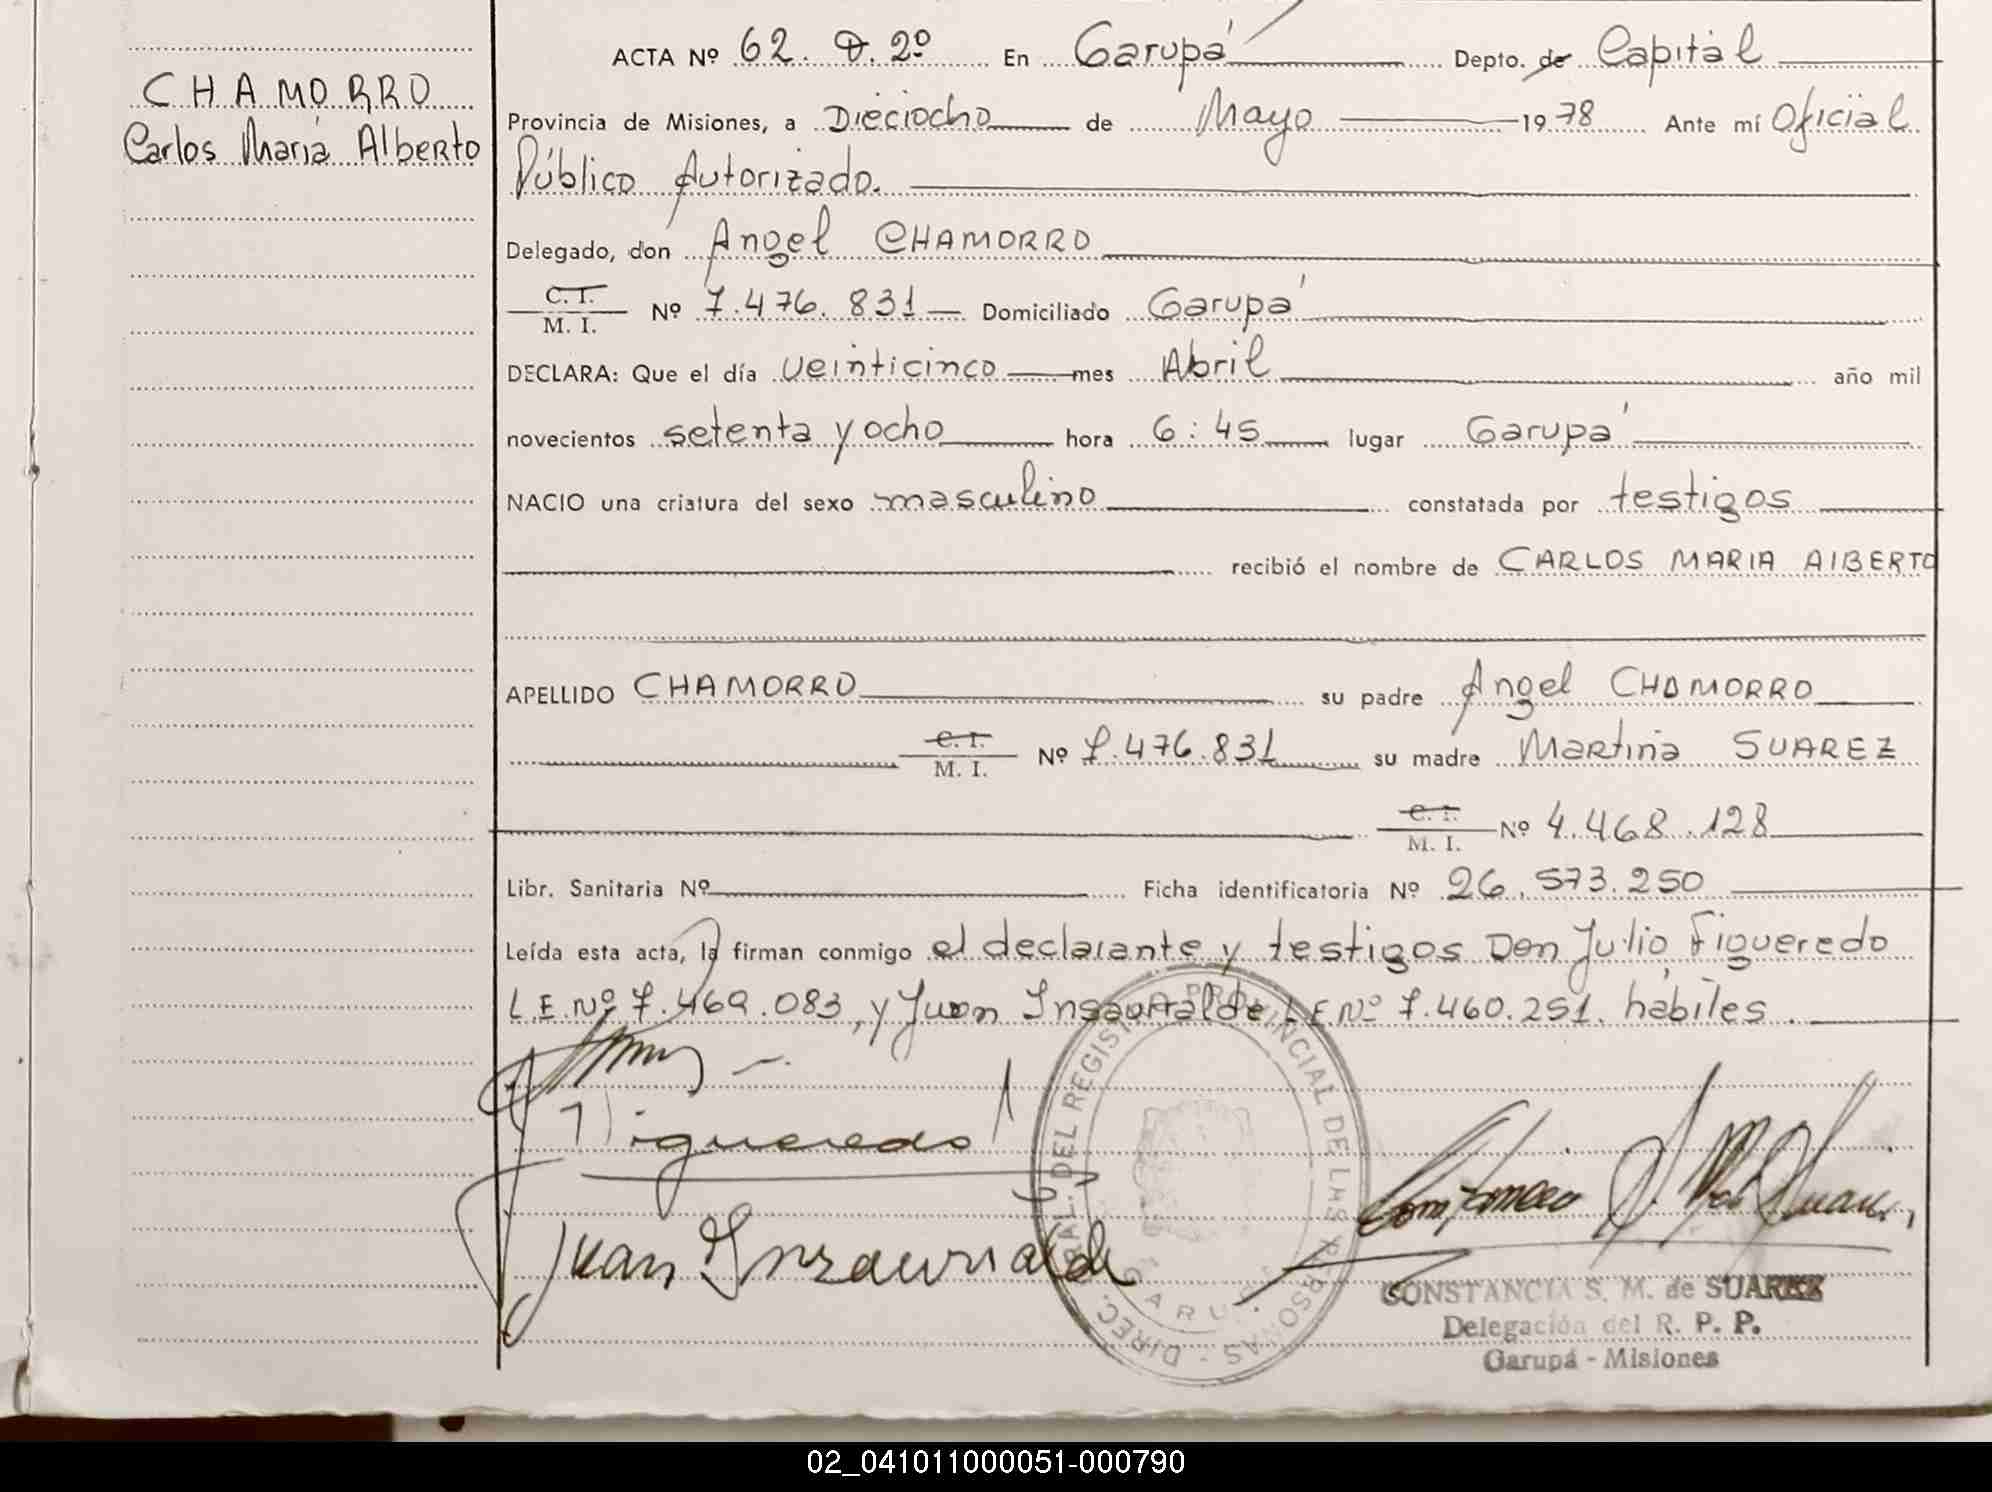 CHAMORRO
Carlos María Alberto
ACTA Nº 62. D. 2º En Garupá Depto. de Capital
Provincia de Misiones, a Dieciocho de Mayo 1978 Ante mí Oficial
Público Autorizado.
Delegado, don Angel CHAMORRO
C. I.
M. I. Nº 7.476.831 Domiciliado Garupá
DECLARA: Que el día veinticinco mes Abril año mil
novecientos setenta y ocho hora 6:45 lugar Garupá
NACIO una criatura del sexo masculino constatada por testigos
recibió el nombre de CARLOS MARIA AlBERTO
APELLIDO CHAMORRO su padre Angel CHAMORRO
C. I.
M. I. Nº 7.476.831 su madre Martina SUAREZ
C. I.
M. I. Nº 4.468.128
Libr. Sanitaria Nº Ficha identificatoria Nº 26.573.250
Leída esta acta, la firman conmigo el declarante y testigos Don Julio Figueredo
L.E.Nº 7.469.083, y Juan Insaurralde L.E.Nº 7.460.251. hábiles.
Figueredo
Juan Inzaurralde
DIREC. GRAL. DEL REGISTRO PROVINCIAL DE LAS PERSONAS
GARUPA
CONSTANCIA S. M. de SUAREZ
Delegación del R. P. P.
Garupá - Misiones
02_041011000051-000790